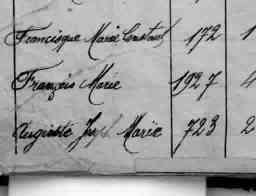 Francisque Marie Constant 172 1
François Marie 1927 4
Auguste Jph Marie 723 2